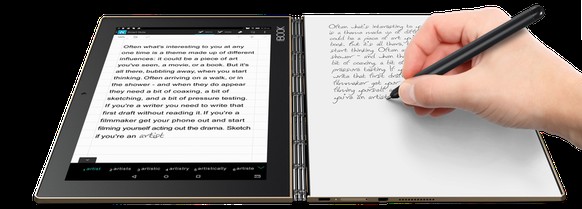 Often what's interesting to you at any
one time is a theme made up of different
influences: it could be a piece of art
you've seen, a movie, or a book. But it's
all there, bubbling away, when you start
thinking. Often arriving on a walk, or in
the shower - and when they do appear
they need a bit of coaxing, a bit of
sketching, and a bit of pressure testing.
If you're a writer you need to write that
first draft without reading it. If you're a
filmmaker get your phone out and start
filming yourself acting out the drama. Sketch
if you're an artist
artist artists artistry artistically artiste
Often what's interesting to you
is a theme made up of
would be a piece of art
book. But it's all there,
start thinking. Often
shower - and when they
bit of coaxing, a bit of
pressure testing. If you
write that first
filmmaker get
filming yourself
you're an artist